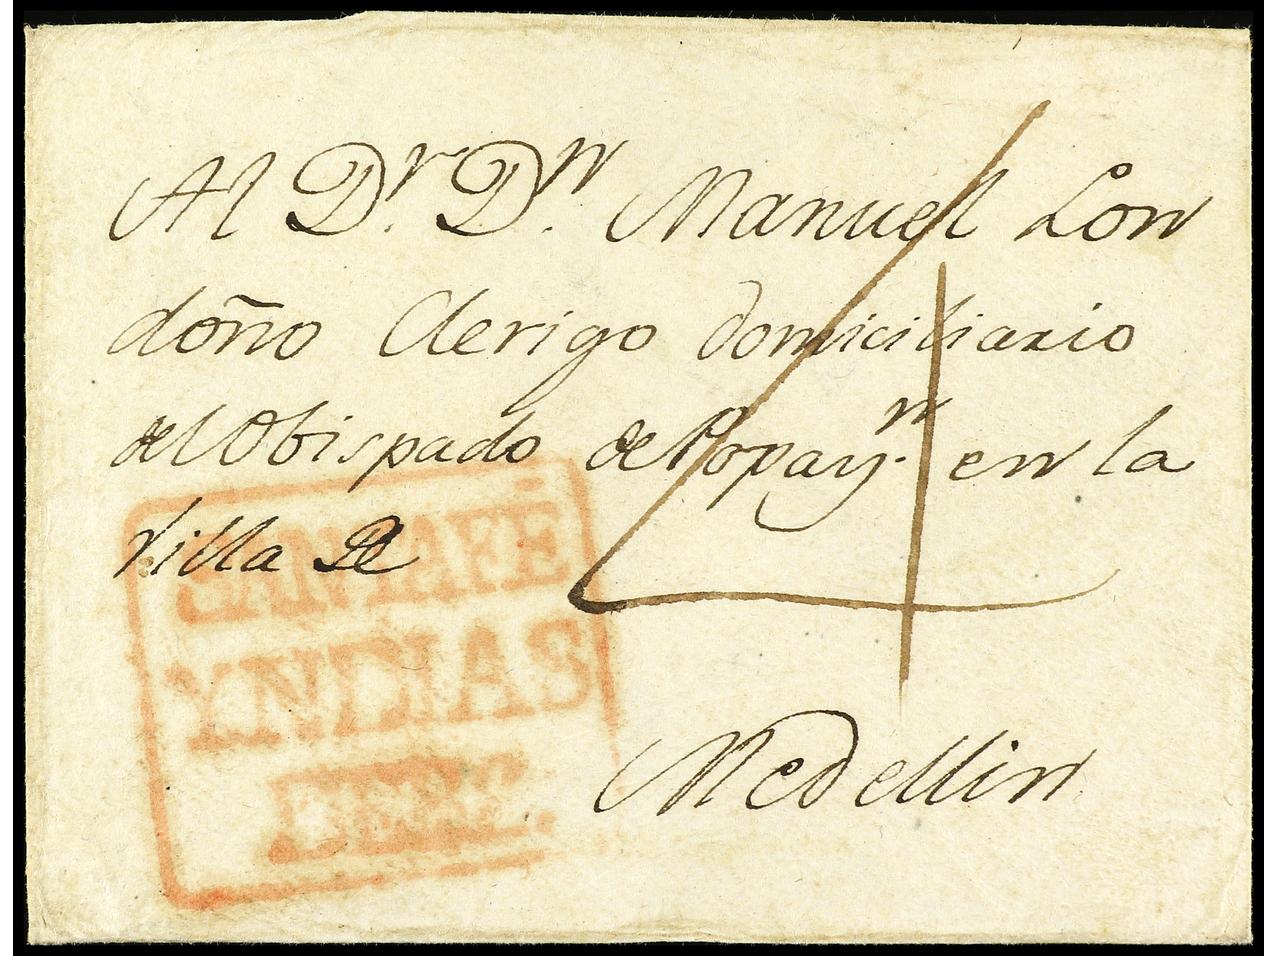 Al Dr. Dn. Manuel Lon
doño Clerigo domiciliario
del Obispado de Popayn. en la
Villa De
4
SANTAFÉ
YNDIAS
Medellin